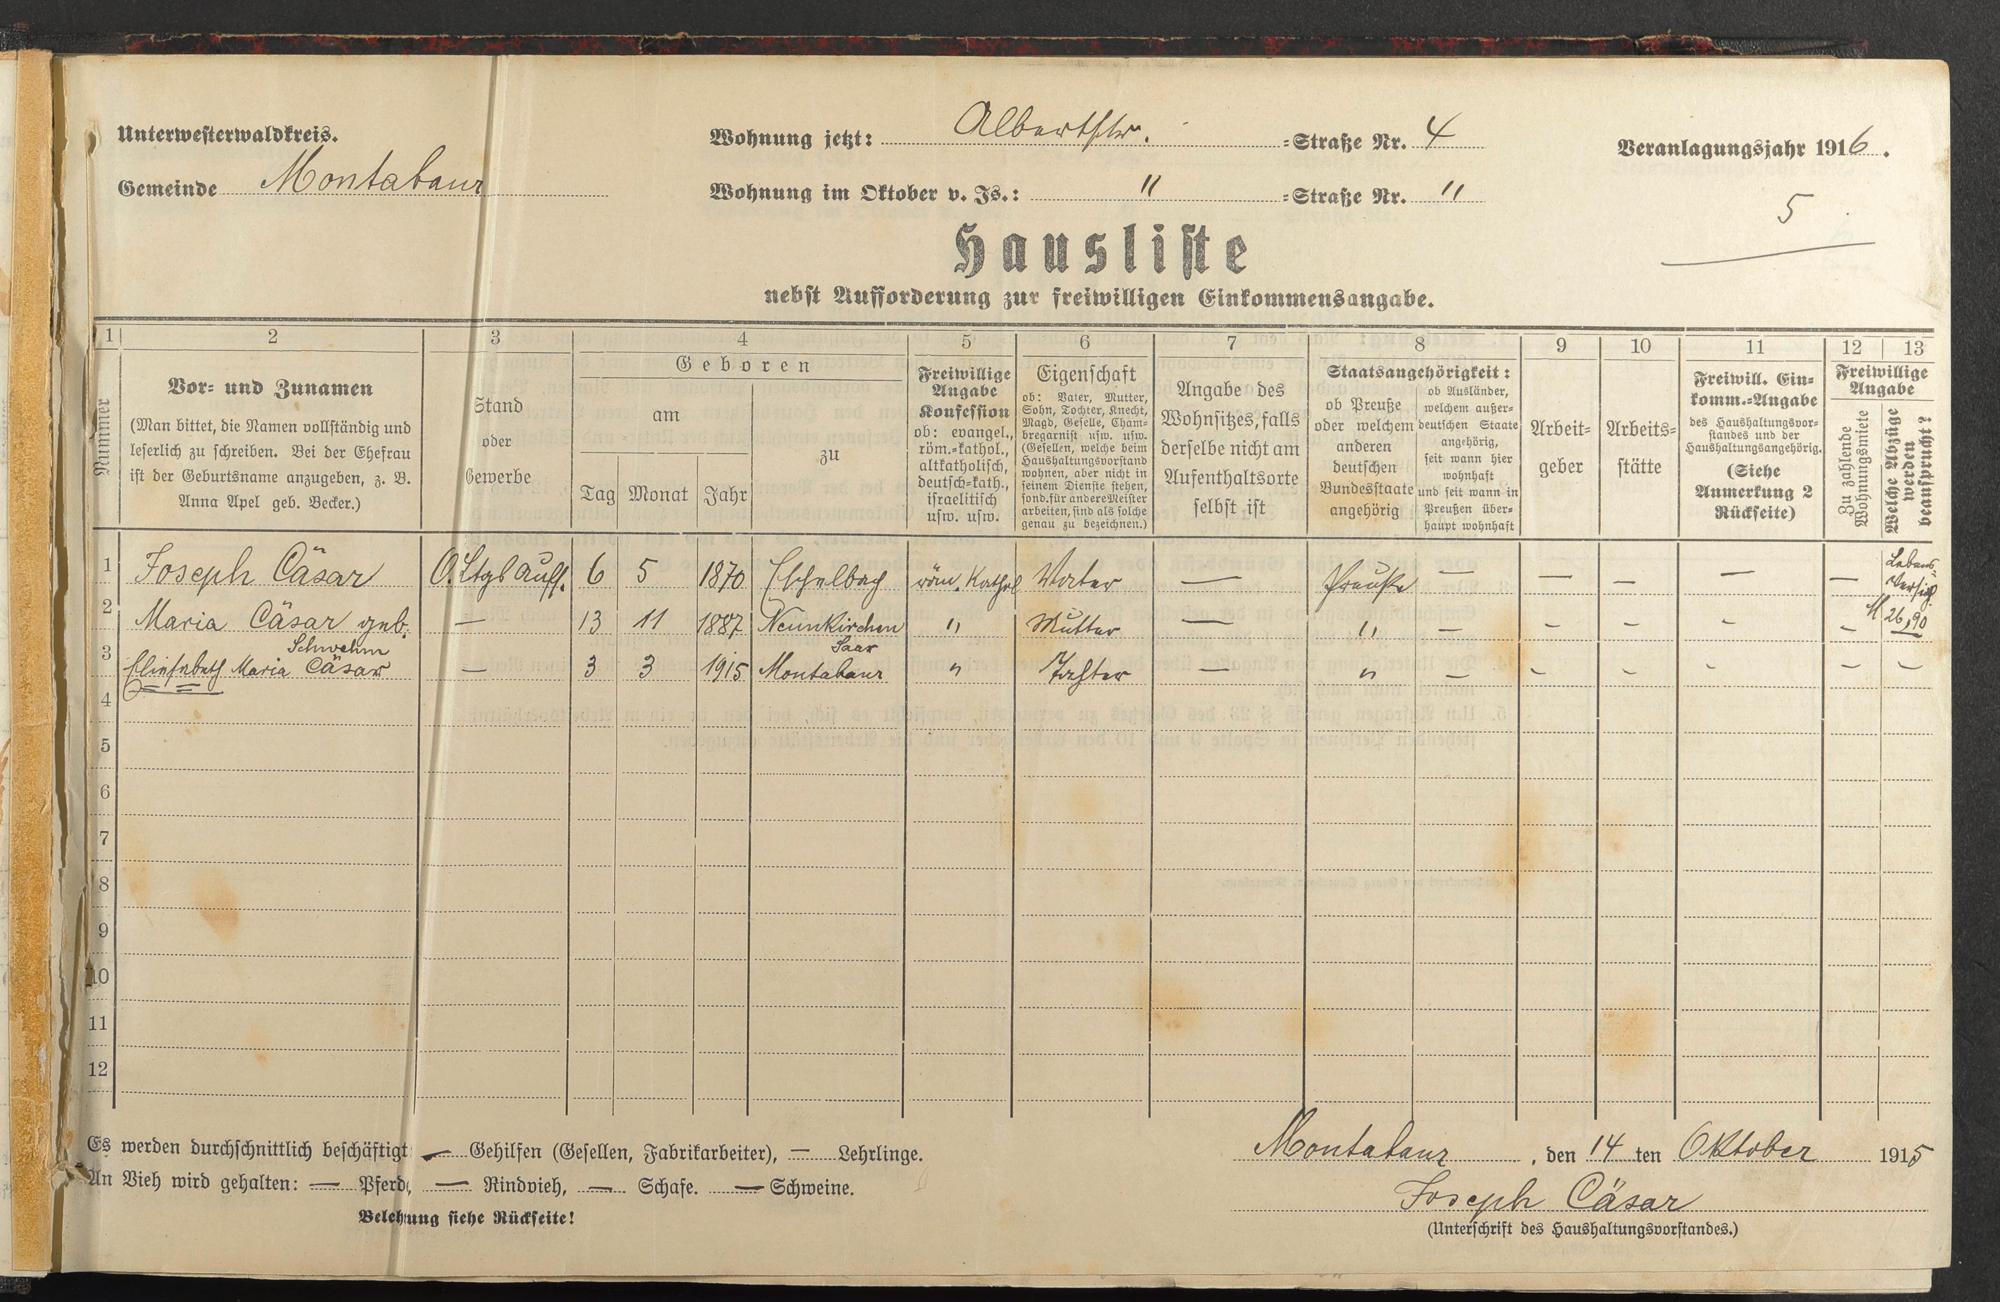 Unterwesterwaldkreis.
Gemeinde Montabaur
Wohnung jetzt: Albertstr. =Straße Nr. 4
Wohnung im Oktober v. Js.: " =Straße Nr. "
Veranlagungsjahr 1916.
5
Hausliste
nebst Aufforderung zur freiwilligen Einkommensangabe.
1 2 3 4 5 6 7 8 9 10 11 12 13
Nummer
Vor- und Zunamen
(Man bittet, die Namen vollständig und
leserlich zu schreiben. Bei der Ehefrau
ist der Geburtsname anzugeben, z. B.
Anna Apel geb. Becker.)
Stand
oder
Gewerbe
Geboren
am
Tag Monat Jahr
zu
Freiwillige
Angabe
Konfession
ob: evangel.,
röm.=kathol.,
altkatholisch,
deutsch=kath.,
israelitisch
usw. usw.
Eigenschaft
ob: Vater, Mutter,
Sohn, Tochter, Knecht,
Magd, Geselle, Cham-
bregarnist usw. usw.
(Gesellen, welche beim
Haushaltungsvorstand
wohnen, aber nicht in
seinem Dienste stehen,
sond. für andere Meister
arbeiten, sind als solche
genau zu bezeichnen.)
Angabe des
Wohnsitzes, falls
derselbe nicht am
Aufenthaltsorte
selbst ist
Staatsangehörigkeit:
ob Preuße
oder welchem
anderen
deutschen
Bundesstaate
angehörig
ob Ausländer,
welchem außer-
deutschen Staate
angehörig,
seit wann hier
wohnhaft
und seit wann in
Preußen über-
haupt wohnhaft
Arbeit=
geber
Arbeits=
stätte
Freiwill. Ein=
komm.=Angabe
des Haushaltungsvor-
standes und der
Haushaltungsangehörig.
(Siehe
Anmerkung 2
Rückseite)
Freiwillige
Angabe
Zu zahlende
Wohnungsmiete
Welche Abzüge
werden
beansprucht?
1 Joseph Cäsar O. Ltgs Auff. 6 5 1870 Eschelbach röm. Kathol Vater — Preuße — — — — — Lebens-
Versich.
2 Maria Cäsar geb. — 13 11 1887 Neunkirchen " Mutter — " — — — — — M 26,90
Schwehm Saar
3 Elisabeth Maria Cäsar — 3 3 1915 Montabaur " Tochter — " — — — — — —
4
5
6
7
8
9
10
11
12
Es werden durchschnittlich beschäftigt — Gehilfen (Gesellen, Fabrikarbeiter), — Lehrlinge.
An Vieh wird gehalten: — Pferde, — Rindvieh, — Schafe. — Schweine.
Belehrung siehe Rückseite!
Montabaur, den 14 ten Oktober 1915
Joseph Cäsar
(Unterschrift des Haushaltungsvorstandes.)